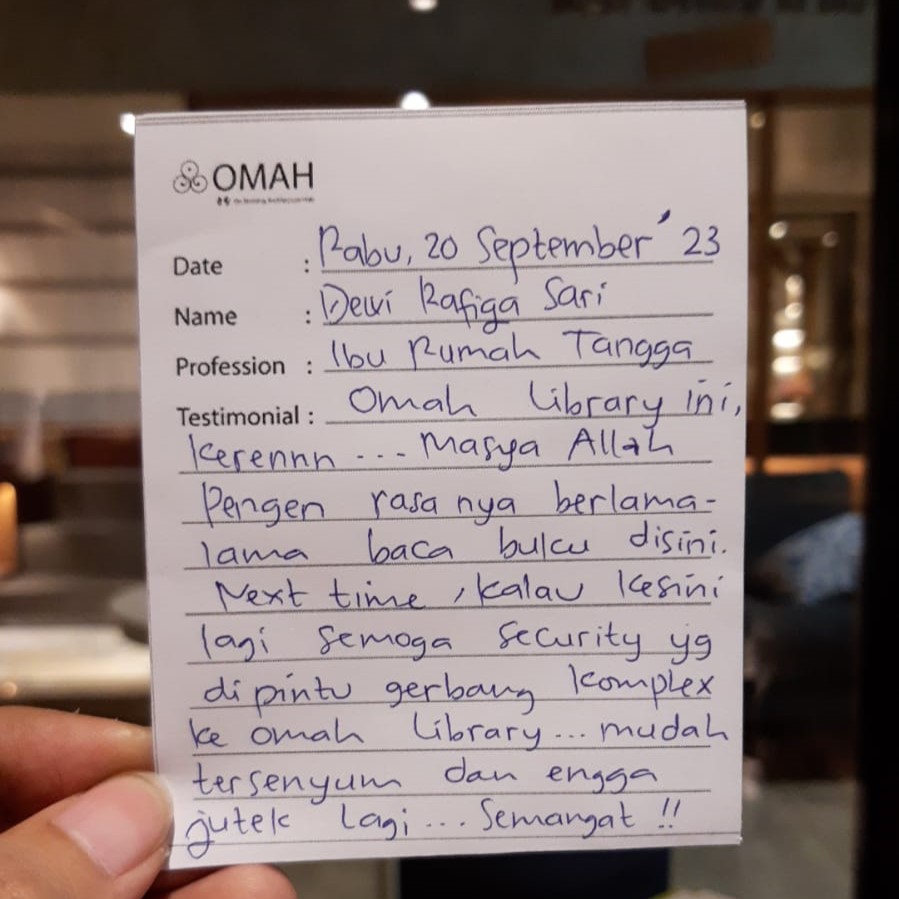 OMAH
Date : Rabu, 20 September '23
Name : Dewi Rafiga Sari
Profession : Ibu Rumah Tangga
Testimonial : Omah Library ini,
kerennn ... Masya Allah
Pengen rasa nya berlama-
lama baca buku disini.
Next time, kalau kesini
lagi semoga security yg
di pintu gerbang komplex
ke omah Library ... mudah
tersenyum dan engga
jutek lagi ... Semangat !!